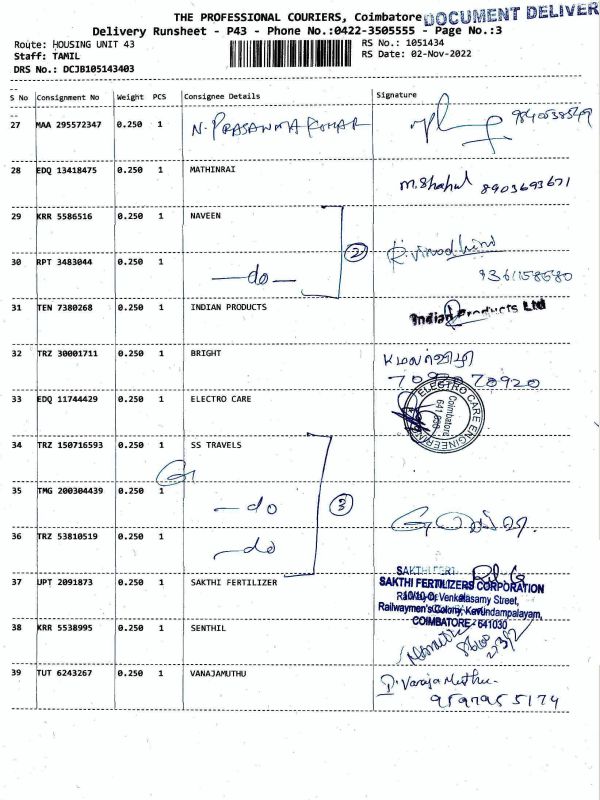 THE PROFESSIONAL COURIERS, Coimbatore DOCUMENT DELIVER
Delivery Runsheet - P43 - Phone No.:0422-3505555 - Page No.:3
Route: HOUSING UNIT 43 RS No.: 1051434
Staff: TAMIL RS Date: 02-Nov-2022
DRS No.: DCJB105143403
S No Consignment No Weight PCS Consignee Details Signature
27 MAA 295572347 0.250 1 N. PRASANNA KUMAR
28 EDQ 13418475 0.250 1 MATHINRAI M. Shahul 8903693671
29 KRR 5586516 0.250 1 NAVEEN
② R. Vinodhini
30 RPT 3483044 0.250 1 —do— 9361158680
31 TEN 7380268 0.250 1 INDIAN PRODUCTS Indian Products Ltd
32 TRZ 30001711 0.250 1 BRIGHT
70920 70920
33 EDQ 11744429 0.250 1 ELECTRO CARE ELECTRO CARE ENGINEERING Coimbatore
34 TRZ 150716593 0.250 1 SS TRAVELS
35 TMG 200304439 0.250 1 —do ③
36 TRZ 53810519 0.250 1 —do
37 UPT 2091873 0.250 1 SAKTHI FERTILIZER SAKTHI FERTILIZERS CORPORATION
Venkatasamy Street,
Railwaymen's Colony, Kavundampalayam,
COIMBATORE - 641030
38 KRR 5538995 0.250 1 SENTHIL
39 TUT 6243267 0.250 1 VANAJAMUTHU D. Vanaja Muthu
9597955174